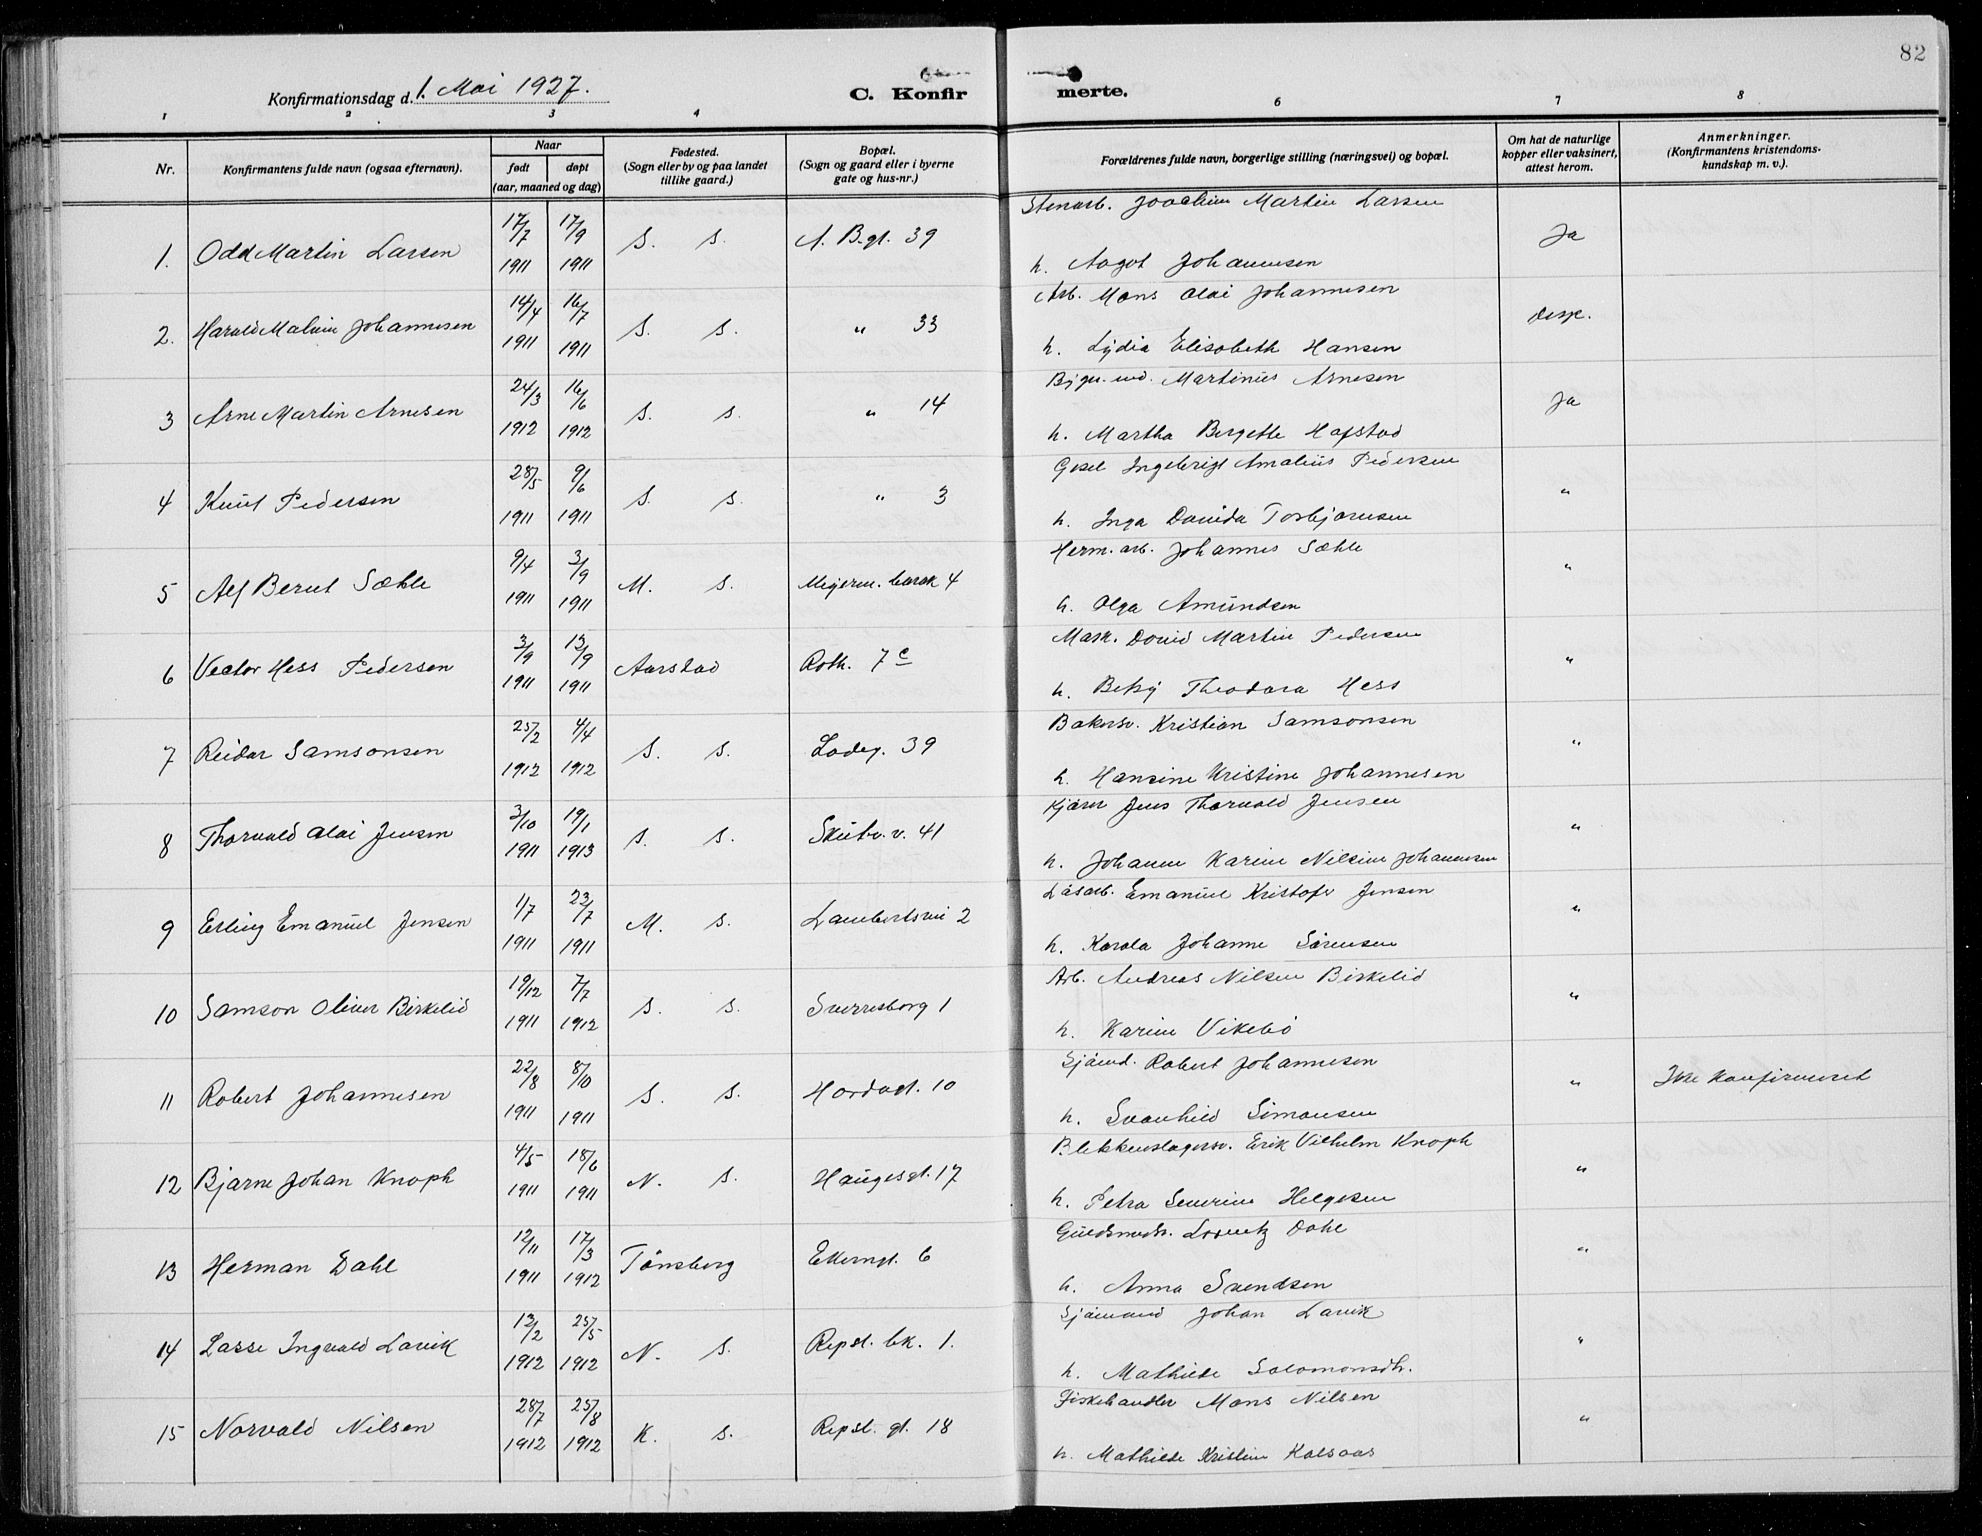 82
Konfirmationsdag d. 1. Mai 1927.
C. Konfirmerte.
1 2 3 4 6 7 8
Nr.
Konfirmantens fulde navn (ogsaa efternavn).
Naar
født døpt
(aar, maaned og dag)
Fødested.
(Sogn eller by og paa landet
tillike gaard.)
Bopæl.
(Sogn og gaard eller i byerne
gate og hus-nr.)
Forældrenes fulde navn, borgerlige stilling (næringsvei) og bopæl.
Om hat de naturlige
kopper eller vaksinert,
attest herom.
Anmerkninger.
(Konfirmantens kristendoms-
kundskap m. v.).
Stenarb. Joachim Martin Larsen
17/7 17/9
1. Odd Martin Larsen S. S. A. B.gt. 39 Ja
1911 1911 h. Aagot Johannesen
14/4 16/7 Arb. Mons Olai Johannesen
2. Harald Malvin Johannesen S. S. " 33 disp.
1911 1911 h. Lydia Elisabeth Hansen
24/3 16/6 Martinus Arnesen
3 Arne Martin Arnesen S. S. " 14 Ja
1912 1912 h. Martha Bergette Hofstad
28/5 9/6 Gesel Ingebrigt Amalius Pedersen
4 Knut Pedersen S. S. " 3 "
1911 1911 h. Inga Davida Torbjørnsen
9/4 3/9 Herm. arb. Johannes Sæhle
5 Alf Bernt Sæhle M. S. Meyerm. barak 4 "
1911 1911 h. Olga Amundsen
3/9 Mask. David Martin Pedersen
6 Vector Hess Pedersen Aarstad Roth. 7 c "
1911 1911 h. Betsy Theodora Hess
25/2 4/4 Bakersv. Kristian Samsonsen
7 Reidar Samsonsen S. S. Ladeg. 39 "
1912 1912 h. Hansine Kristine Johannesen
3/10 19/1 Kjører Jens Thorvald Jensen
8 Thorvald Olai Jensen S. S. Skutev. v. 41 "
1911 1913 h. Johanne Karine Nilsine Johannesen
1/7 23/7 Løsarb. Emanuel Kristofer Jensen
9 Erling Emanuel Jensen M. S. Lambertsvei 2 "
1911 1911 h. Karola Johanne Sørensen
19/12 7/7 Arb. Andreas Nilsen Birkelid
10 Samson Oliver Birkelid S. S. Sverresborg 1 "
1911 1912 h. Karine Vikebø
22/8 8/10 Sjømd. Robert Johannesen
11 Robert Johannesen S. S. Hordagt. 10 " Ikke konfirmeret
1911 1911 h. Svanhild Simonsen
4/5 18/6 Blikkenslagersv. Erik Vilhelm Knoph
12 Bjarne Johan Knoph N. S. Haugesgt. 17 "
1911 1911 h. Petra Severine Helgesen
12/11 17/3 Guldsmedsv. Lorentz Dahl
13 Herman Dahl Tønsberg Ekerngt. 6 "
1911 1912 h. Anna Svendsen
13/2 25/5 Sjømand Johan Larvik
14 Lasse Ingvald Larvik N. S. Repsl. bk. 1. "
1912 1912 h. Mathilde Solomonsdtr.
28/7 25/8 Fiskehandler Mons Nilsen
15 Norvald Nilsen K. S. Repsl. gt. 18 "
1912 1912 h. Mathilde Kristine Kalsaas